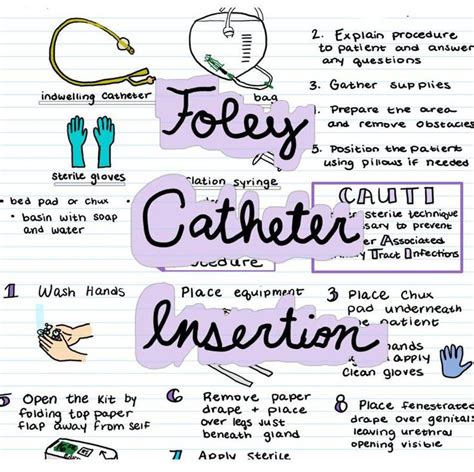 2. Explain procedure
to patient and answer
any questions
3. Gather supplies
indwelling catheter
bag
Foley
Prepare the area
and remove obstacles
5. Position the patient
using pillows if needed
sterile gloves
syringe
• bed pad or chux
• basin with soap
and water
CAUTI
sterile technique
to prevent
Associated
Tract Infections
Catheter
1 Wash Hands
Place equipment
3 Place Chux
pad underneath
patient
Insertion
hands
apply
clean gloves
5 Open the Kit by
folding top paper
flap away from self
6 Remove paper
drape + place
over legs just
beneath gland
8 Place fenestrated
drape over genital
leaving urethral
opening visible
7 Apply Sterile